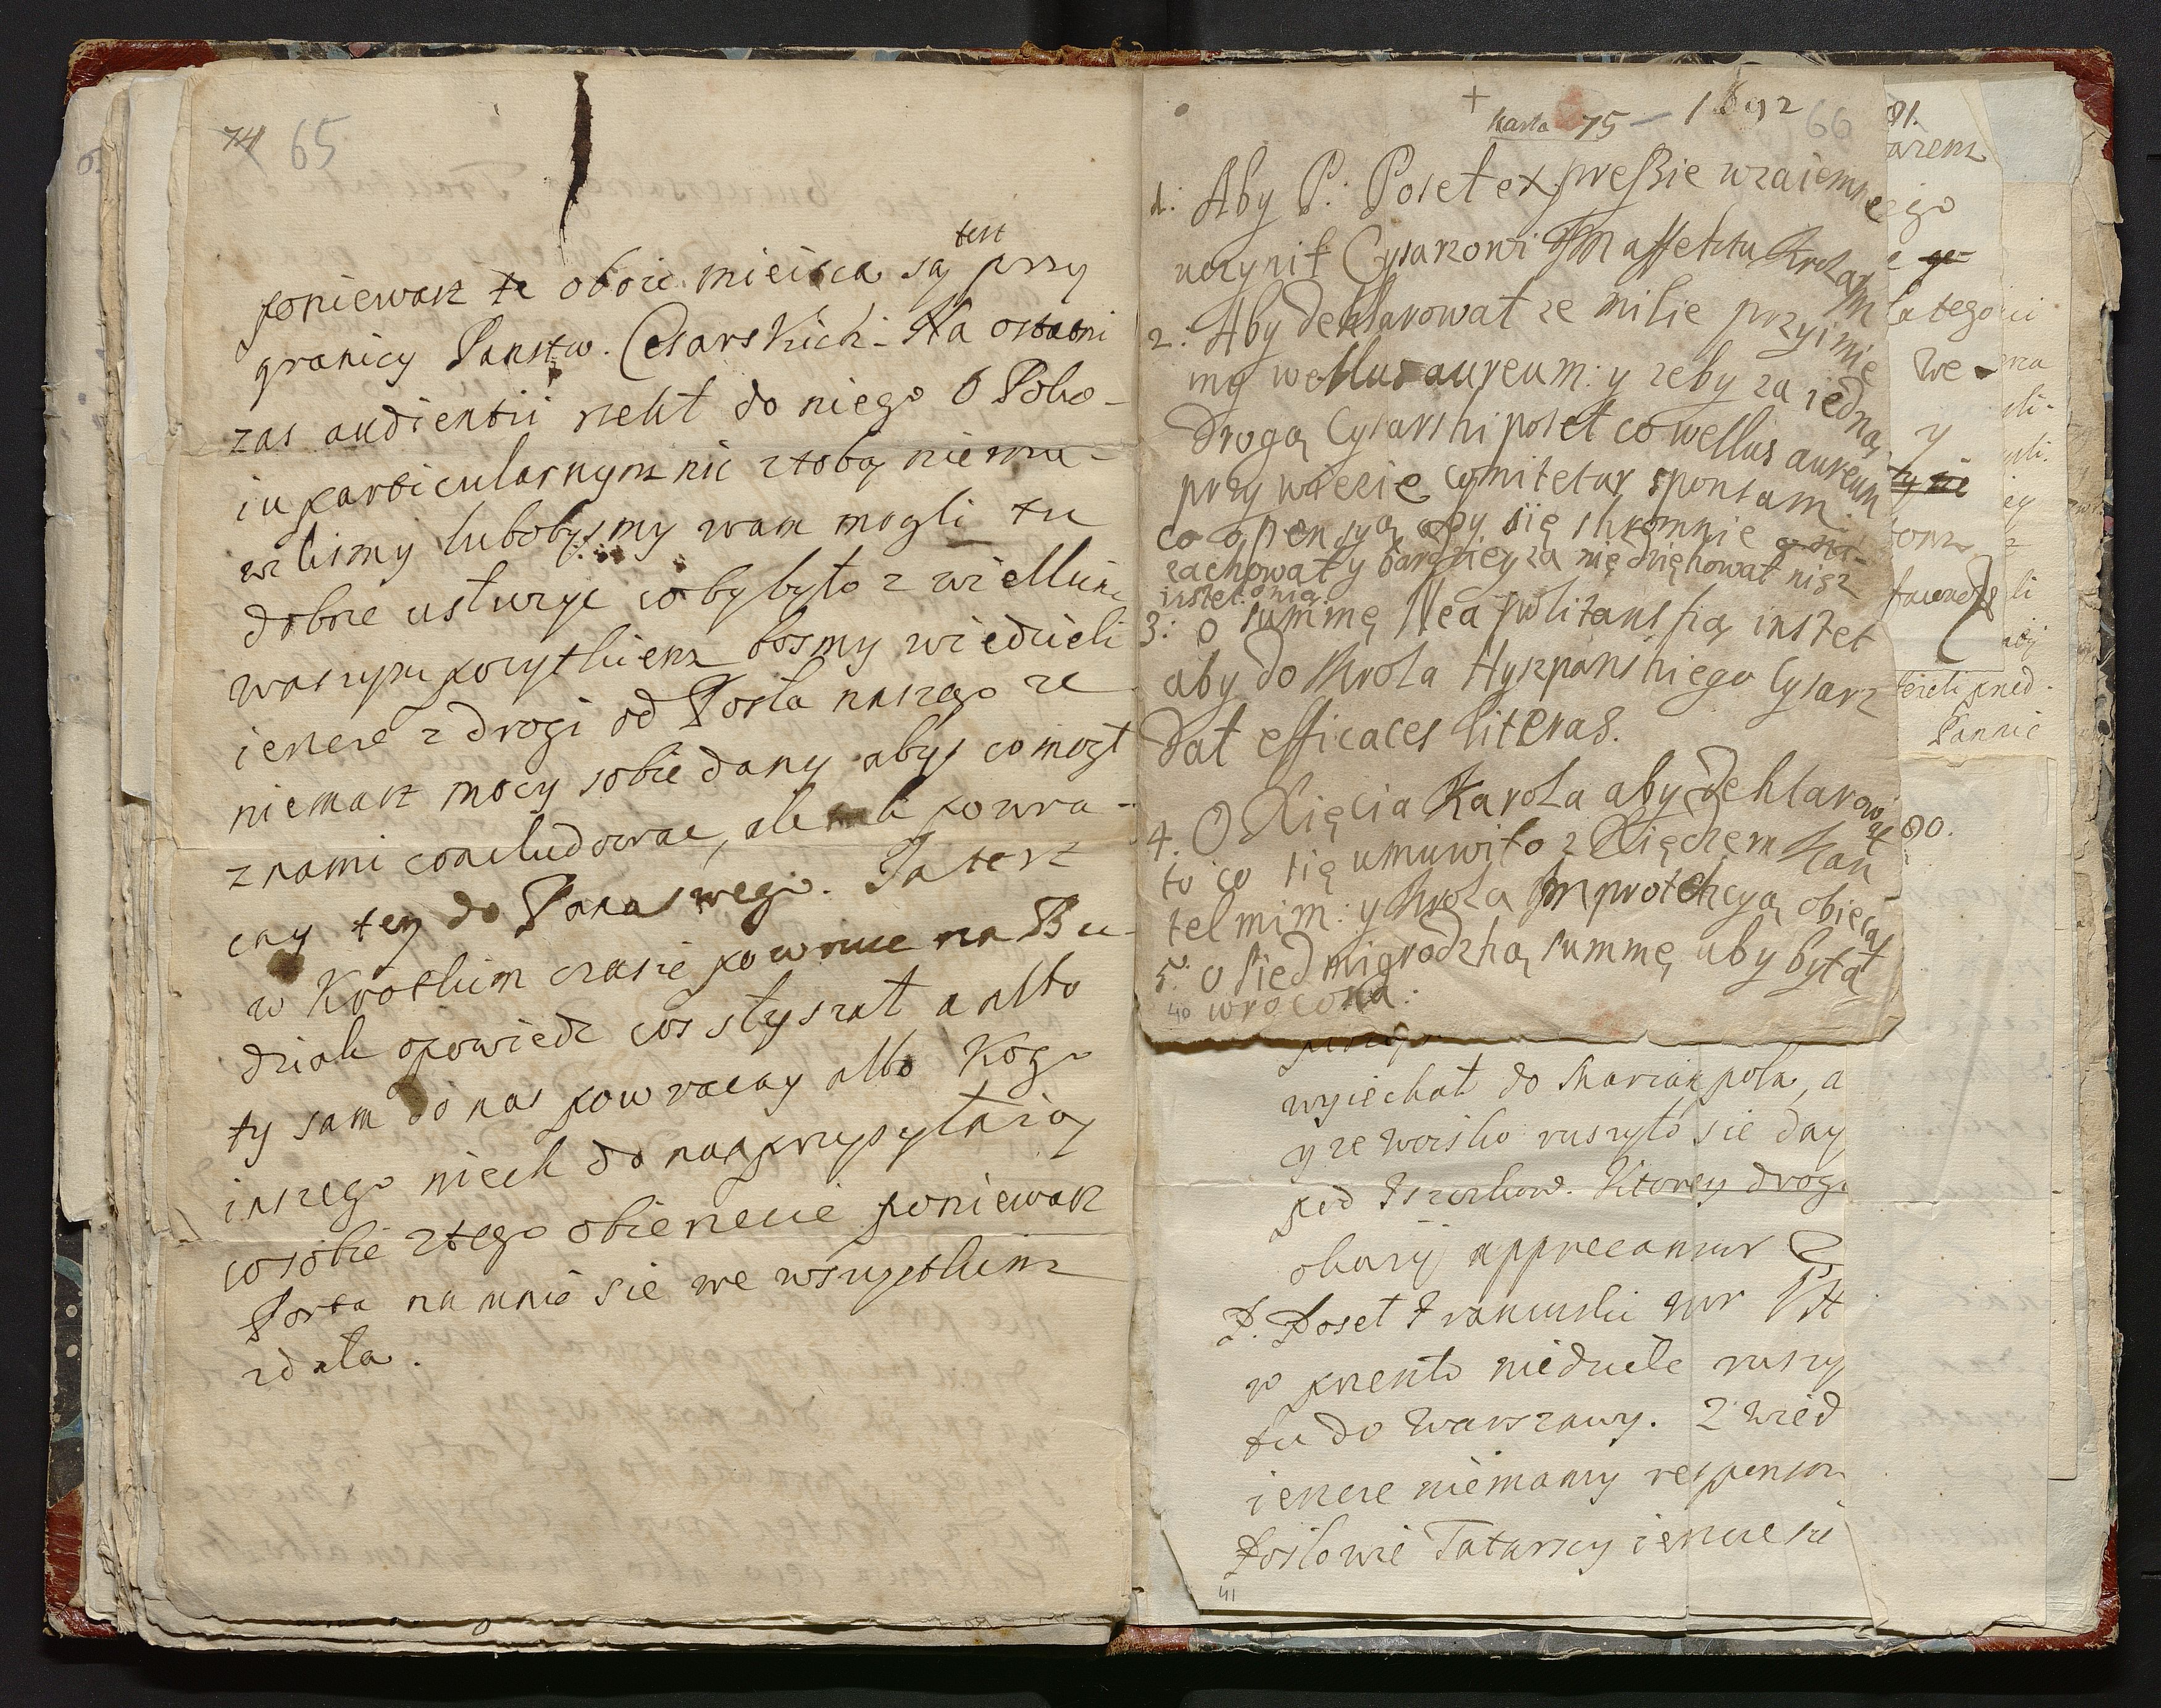 74 65
poniewasz te oboie mieisca są test przy
granicy Panstw. Cesarskich. Na ostatni
zas audientii rzekł do niego O Poko-
iu particularnym nic z tobą nie mu-
wilismy lubobysmy wam mogli tu
dobrze usłuzyc co by było z wielkim
waszym pozytkiem bosmy wiedzieli
ieszcze z drogi od Posła naszego ze
niemasz mocy sobie dany abys co mogł
z nami concludowac, ale powra-
cay tey do Pana swego. Ja tesz
w Krotkim czasie powruce na Bu-
dziak opowiedz cos słyszał a albo
ty sam do nas powracay albo Kogo
inszego niech do nas przysyłaią
co sobie z tego obierzecie poniewasz
Porta na mnie sie we wszystkim
zdała.
+
Karta 75 – 1692 66
1: Aby P. Poseł expressie wzaiemne
uczynił Cysarzowi JM affektu Krola JM
2: Aby deklarował ze milie przyimie
mą wellus aureum: y zeby za iedną
drogą Cysarski poseł co wellus aureum
przywiezie comitetur sponsam.
co o pensyą aby się skromnie
zachował y bardziey za nię dziękował nisz
instet o nią.
3: o summę Neapolitanską instet
aby do Krola Hyszpanskiego Cysarz
dał efficaces literas.
4. O Xięcia Karola aby deklarował
to co się umuwiło z Xiędzem Kan
telmim: y Krola Jm protekcyą obiecał
5: o siedmigrodzką summę aby była
40 wrocona.
wyiechał do Marianpola, a
y ze woisko ruszyło sie day
pod Trzcz. Ktorey drog
okazij apprecamur
P. Poseł Francuski
w przeszło niedziele ruszy
tu do Warszawy. Z Wied
ieszcze niemamy responsow
Posłowie Tatarscy ieszcze sie
41
81.
arem
ego
tego
we
y
80.
Pannie